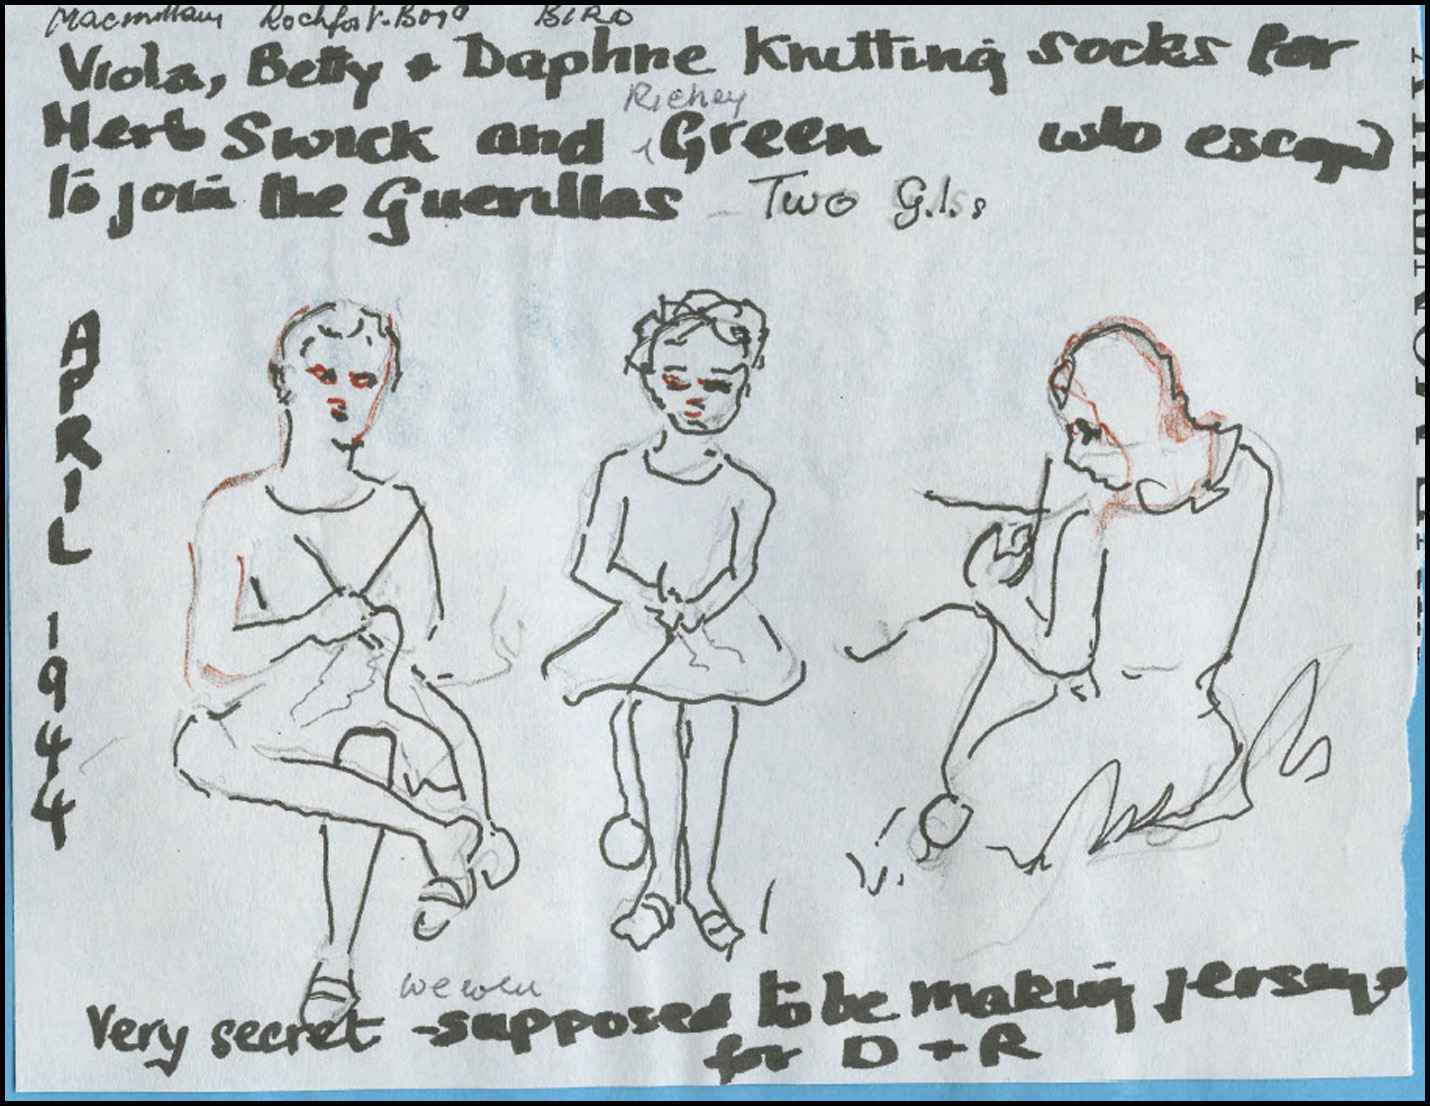 Macmillan Rochfort-Boyd BIRD
Viola, Betty + Daphne Knitting socks for
Richey
Herb Swick and Green who escaped
to join the Guerillas - Two G.I.s
APRIL 1944
we were
Very secret - supposed to be making jerseys
for D + R